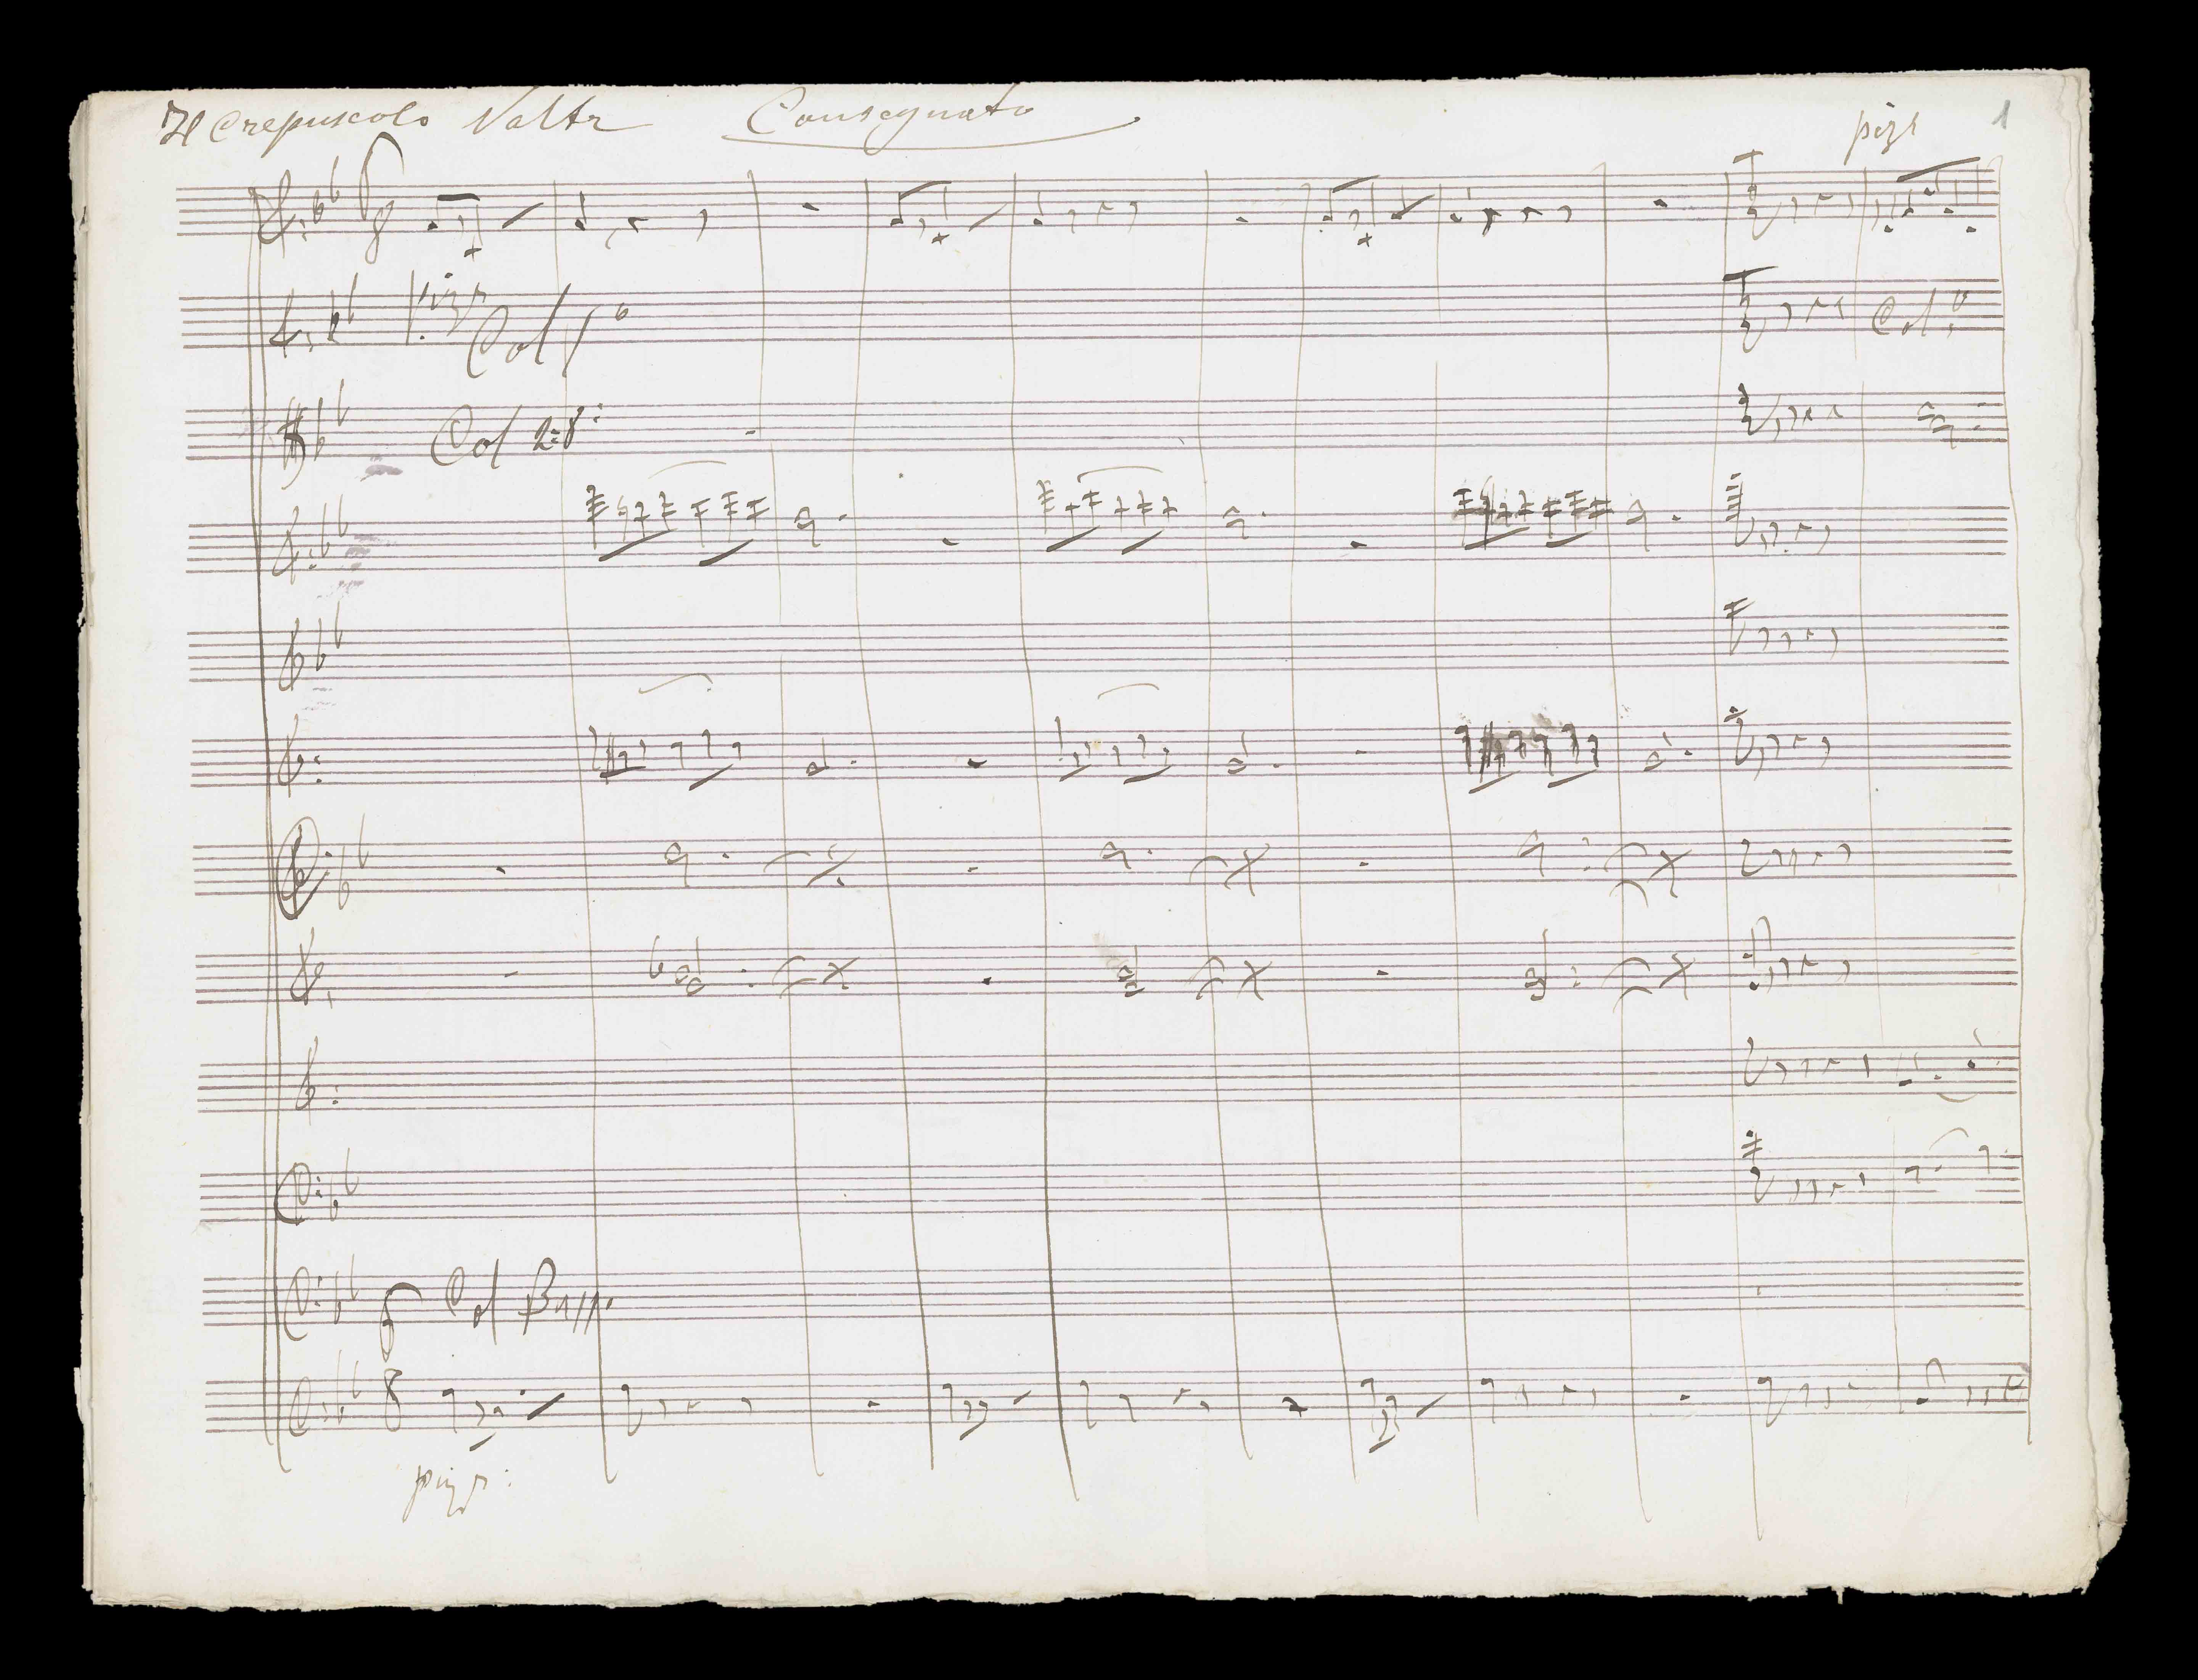 Il Crepuscolo Valtz Consegnato 1
pizz
pizz Col 1º Col 1º
Col 2º 8ª
6
Col Basso
8
pizz: